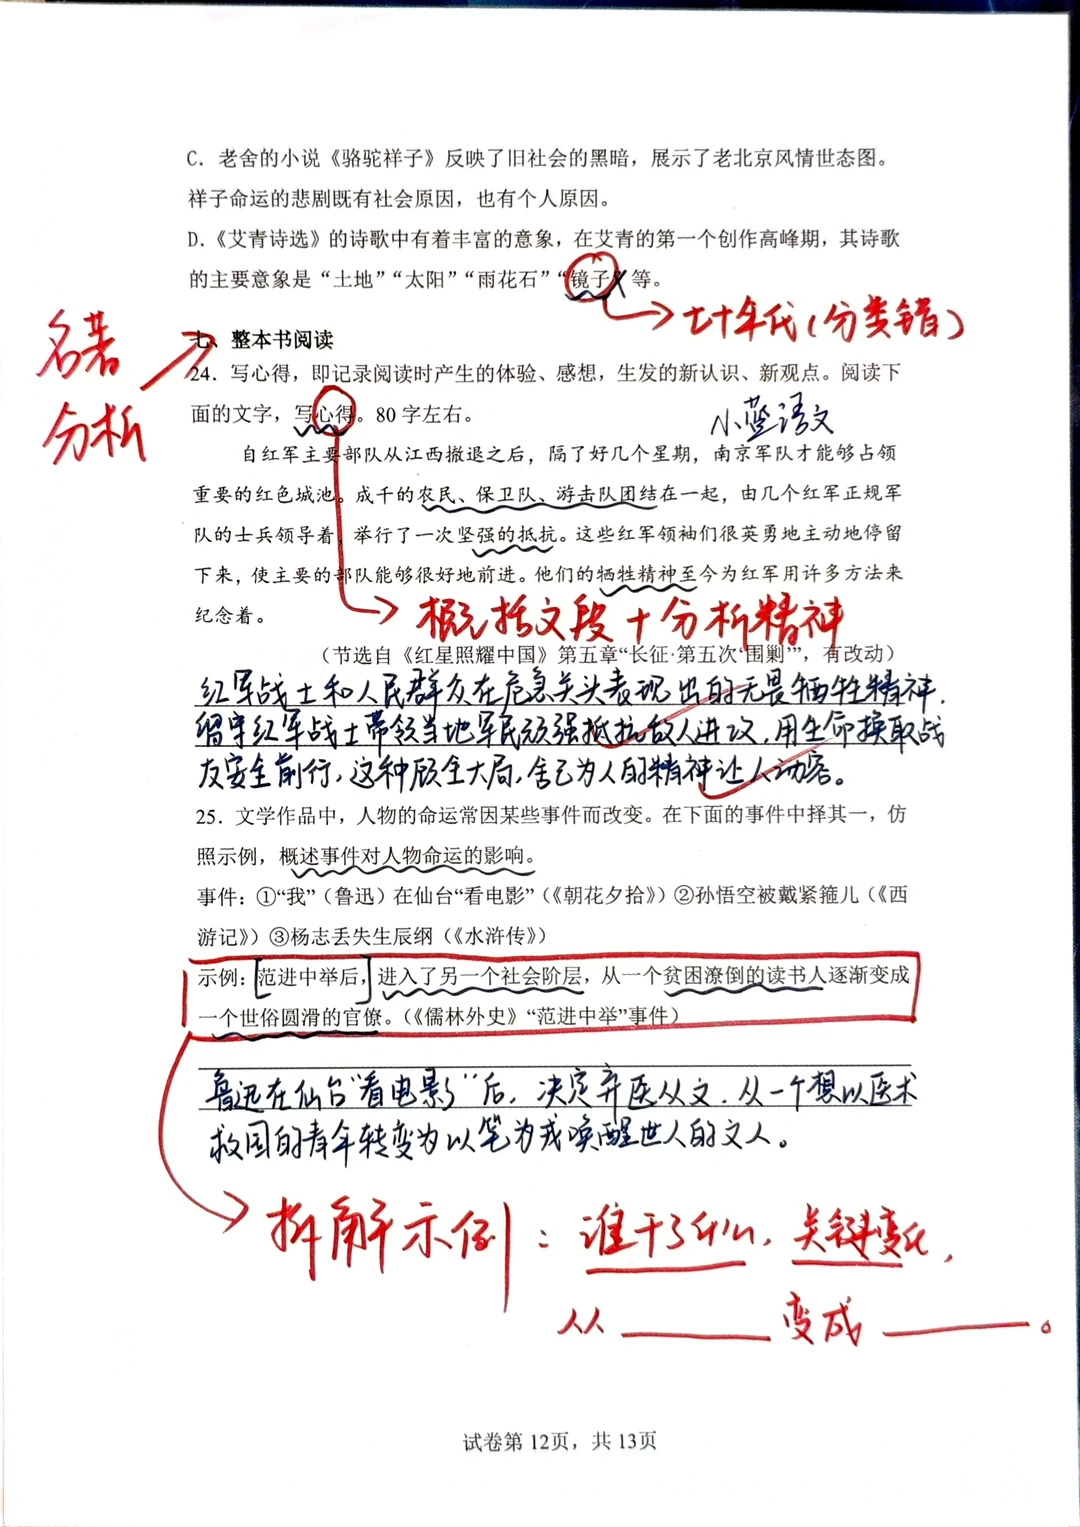 C. 老舍的小说《骆驼祥子》反映了旧社会的黑暗，展示了老北京风情世态图。
祥子命运的悲剧既有社会原因，也有个人原因。
D.《艾青诗选》的诗歌中有着丰富的意象，在艾青的第一个创作高峰期，其诗歌
的主要意象是“土地”“太阳”“雨花石”“镜子”等。
七十年代(分类错)
名著
分析
七、整本书阅读
24. 写心得，即记录阅读时产生的体验、感想，生发的新认识、新观点。阅读下
面的文字，写心得。80 字左右。
小蓝语文
自红军主要部队从江西撤退之后，隔了好几个星期，南京军队才能够占领
重要的红色城池。成千的农民、保卫队、游击队团结在一起，由几个红军正规军
队的士兵领导着，举行了一次坚强的抵抗。这些红军领袖们很英勇地主动地停留
下来，使主要的部队能够很好地前进。他们的牺牲精神至今为红军用许多方法来
纪念着。
概括文段+分析精神
（节选自《红星照耀中国》第五章“长征·第五次‘围剿’”，有改动）
红军战士和人民群众在危急关头表现出的无畏牺牲精神.
留守红军战士带领当地军民顽强抵抗敌人进攻,用生命换取战
友安全前行,这种顾全大局,舍己为人的精神让人动容。
25. 文学作品中，人物的命运常因某些事件而改变。在下面的事件中择其一，仿
照示例，概述事件对人物命运的影响。
事件：①“我”（鲁迅）在仙台“看电影”（《朝花夕拾》）②孙悟空被戴紧箍儿（《西
游记》）③杨志丢失生辰纲（《水浒传》）
示例：范进中举后，进入了另一个社会阶层，从一个贫困潦倒的读书人逐渐变成
一个世俗圆滑的官僚。（《儒林外史》“范进中举”事件）
鲁迅在仙台“看电影”后,决定弃医从文.从一个想以医术
救国的青年转变为以笔为戎唤醒世人的文人。
拆解示例：谁干了什么,关键变化,
从______变成______。
试卷第 12页，共 13页